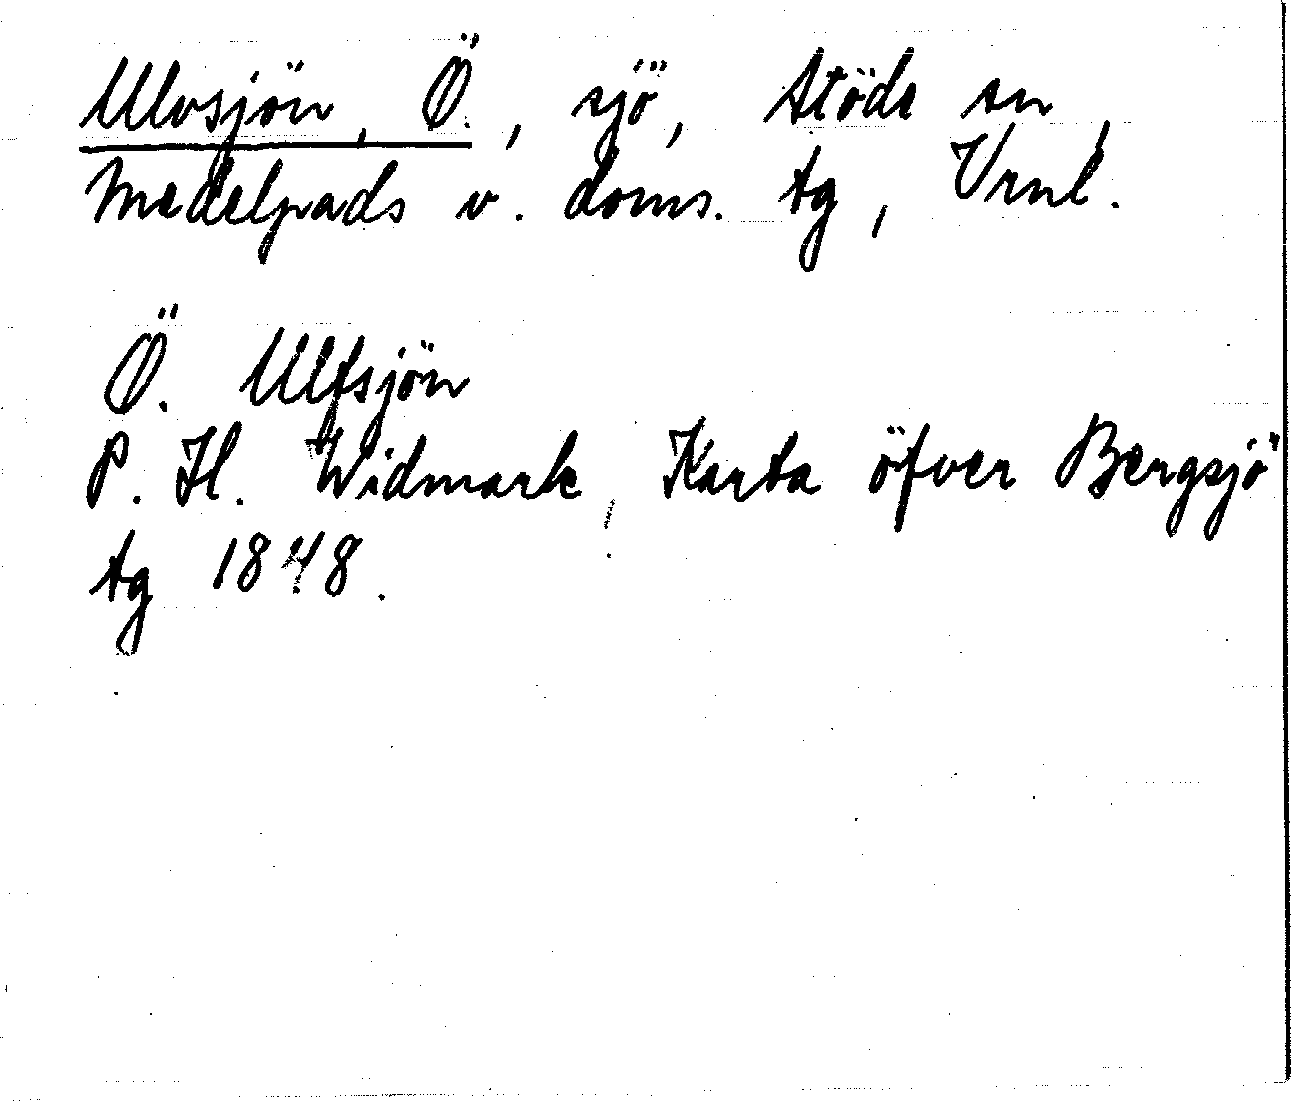 Ulvsjön, Ö., sjö, Stöde sn,
Medelpads v. doms. tg, Vrnl.
Ö. Ulfsjön
P. H. Widmark, Karta öfver Bergsjö
tg 1848.